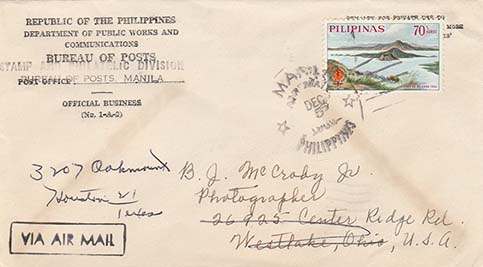 REPUBLIC OF THE PHILIPPINES
DEPARTMENT OF PUBLIC WORKS AND
COMMUNICATIONS
BUREAU OF POSTS
STAMP AND DIVISION
BUREAU OF POSTS, MANILA
POST OFFICE:
OFFICIAL BUSINESS
(No. 1-A-2)
PILIPINAS 70s
MANILA
DEC
PHILIPPINES
3207 Oakmount
Houston 21
Texas
B. J. McCrody Jr.
Photographer
26925 Center Ridge Rd.
Westlake, Ohio, U.S.A.
VIA AIR MAIL